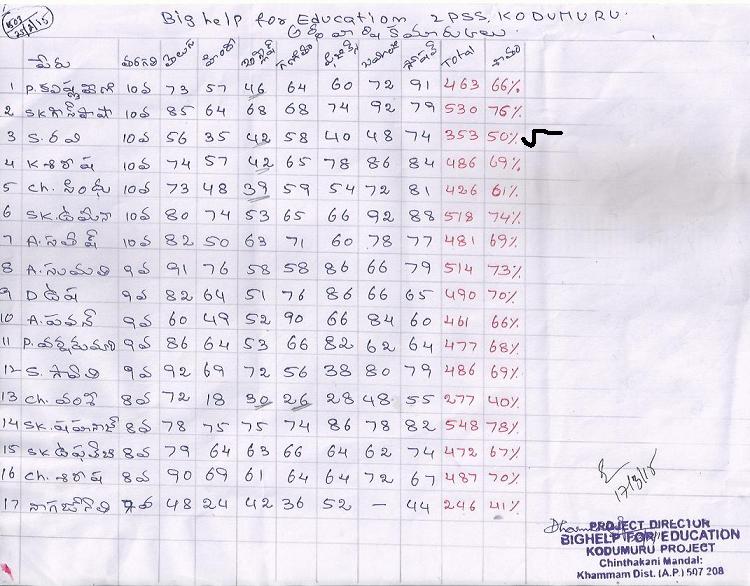 Big help for Education 2PSS. KODUMURU.
పేరు తరగతి తెలుగు హిందీ ఇంగ్లీష్ గణితం సైన్స్ Total శాతం
1 P. 10వ 73 57 46 64 60 72 91 463 66%
2 SK. 10వ 85 64 68 68 74 92 79 530 76%
3 S. రవి 10వ 56 35 42 58 40 48 74 353 50%
4 K శిరీష 10వ 74 57 42 65 78 86 84 486 69%
5 Ch. సింధు 10వ 73 48 39 59 54 72 81 426 61%
6 SK. 10వ 80 74 53 65 66 92 88 518 74%
7 A. సతీష్ 10వ 82 50 63 71 60 78 77 481 69%
8 A. సుమతి 9వ 91 76 58 58 86 66 79 514 73%
9 D ఉష 9వ 82 64 51 76 86 66 65 490 70%
10 A. పవన్ 9వ 60 49 52 90 66 84 60 461 66%
11 P. 9వ 86 64 53 66 82 62 64 477 68%
12 S. 9వ 92 69 72 56 38 80 79 486 69%
13 Ch. వంశీ 8వ 72 18 30 26 28 48 55 277 40%
14 SK. 8వ 78 75 75 74 86 78 82 548 78%
15 SK. 8వ 79 64 63 66 64 62 74 472 67%
16 Ch. శిరీష 8వ 90 69 61 64 64 72 67 487 70%
17 48 24 42 36 52 – 44 246 41%
17/3/15
PROJECT DIRECTUR
BIGHELP FOR EDUCATION
KODUMURU PROJECT
Chinthakani Mandal:
Khammam Dist. (A.P.) 507 208